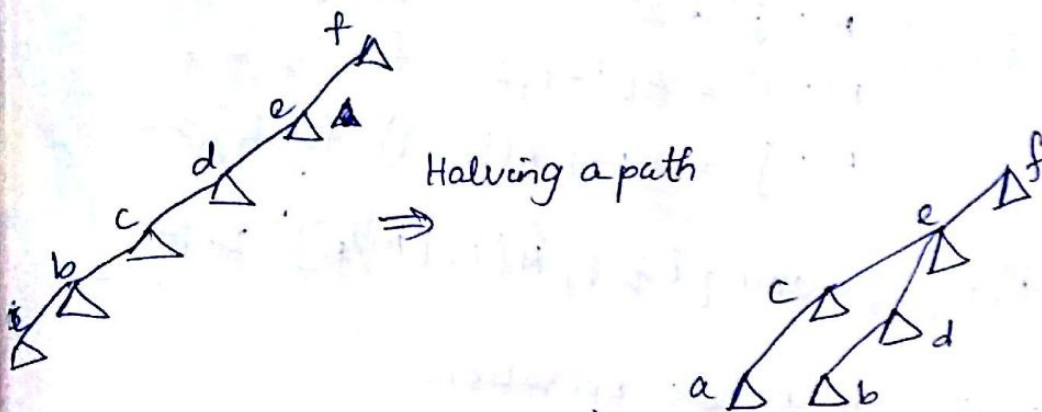 f
e
d
c
b
⇒ Halving a path
f
e
c
d
a
b